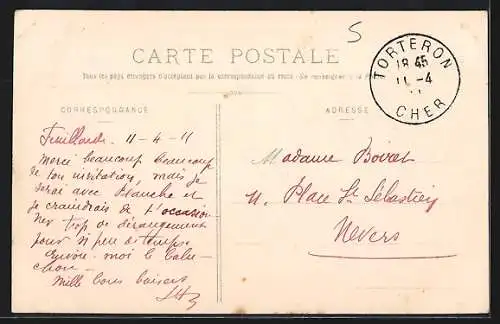 5
CARTE POSTALE
Tous les pays étrangers n'acceptent pas la correspondance au recto. Se renseigner à la
TORTERON
18 45
11 - 4
11
CHER
CORRESPONDANCE
ADRESSE
Feuillarde 11-4-11
Merci beaucoup beaucoup
de ton invitation, mais je
serai avec Blanche et
je craindrais de t'occasion
ner trop de dérangement
pour si peu de temps
Envoie-moi le balu-
chon.
Mille bons baisers
Madame Boiret
11, Place St Sébastien
Nevers